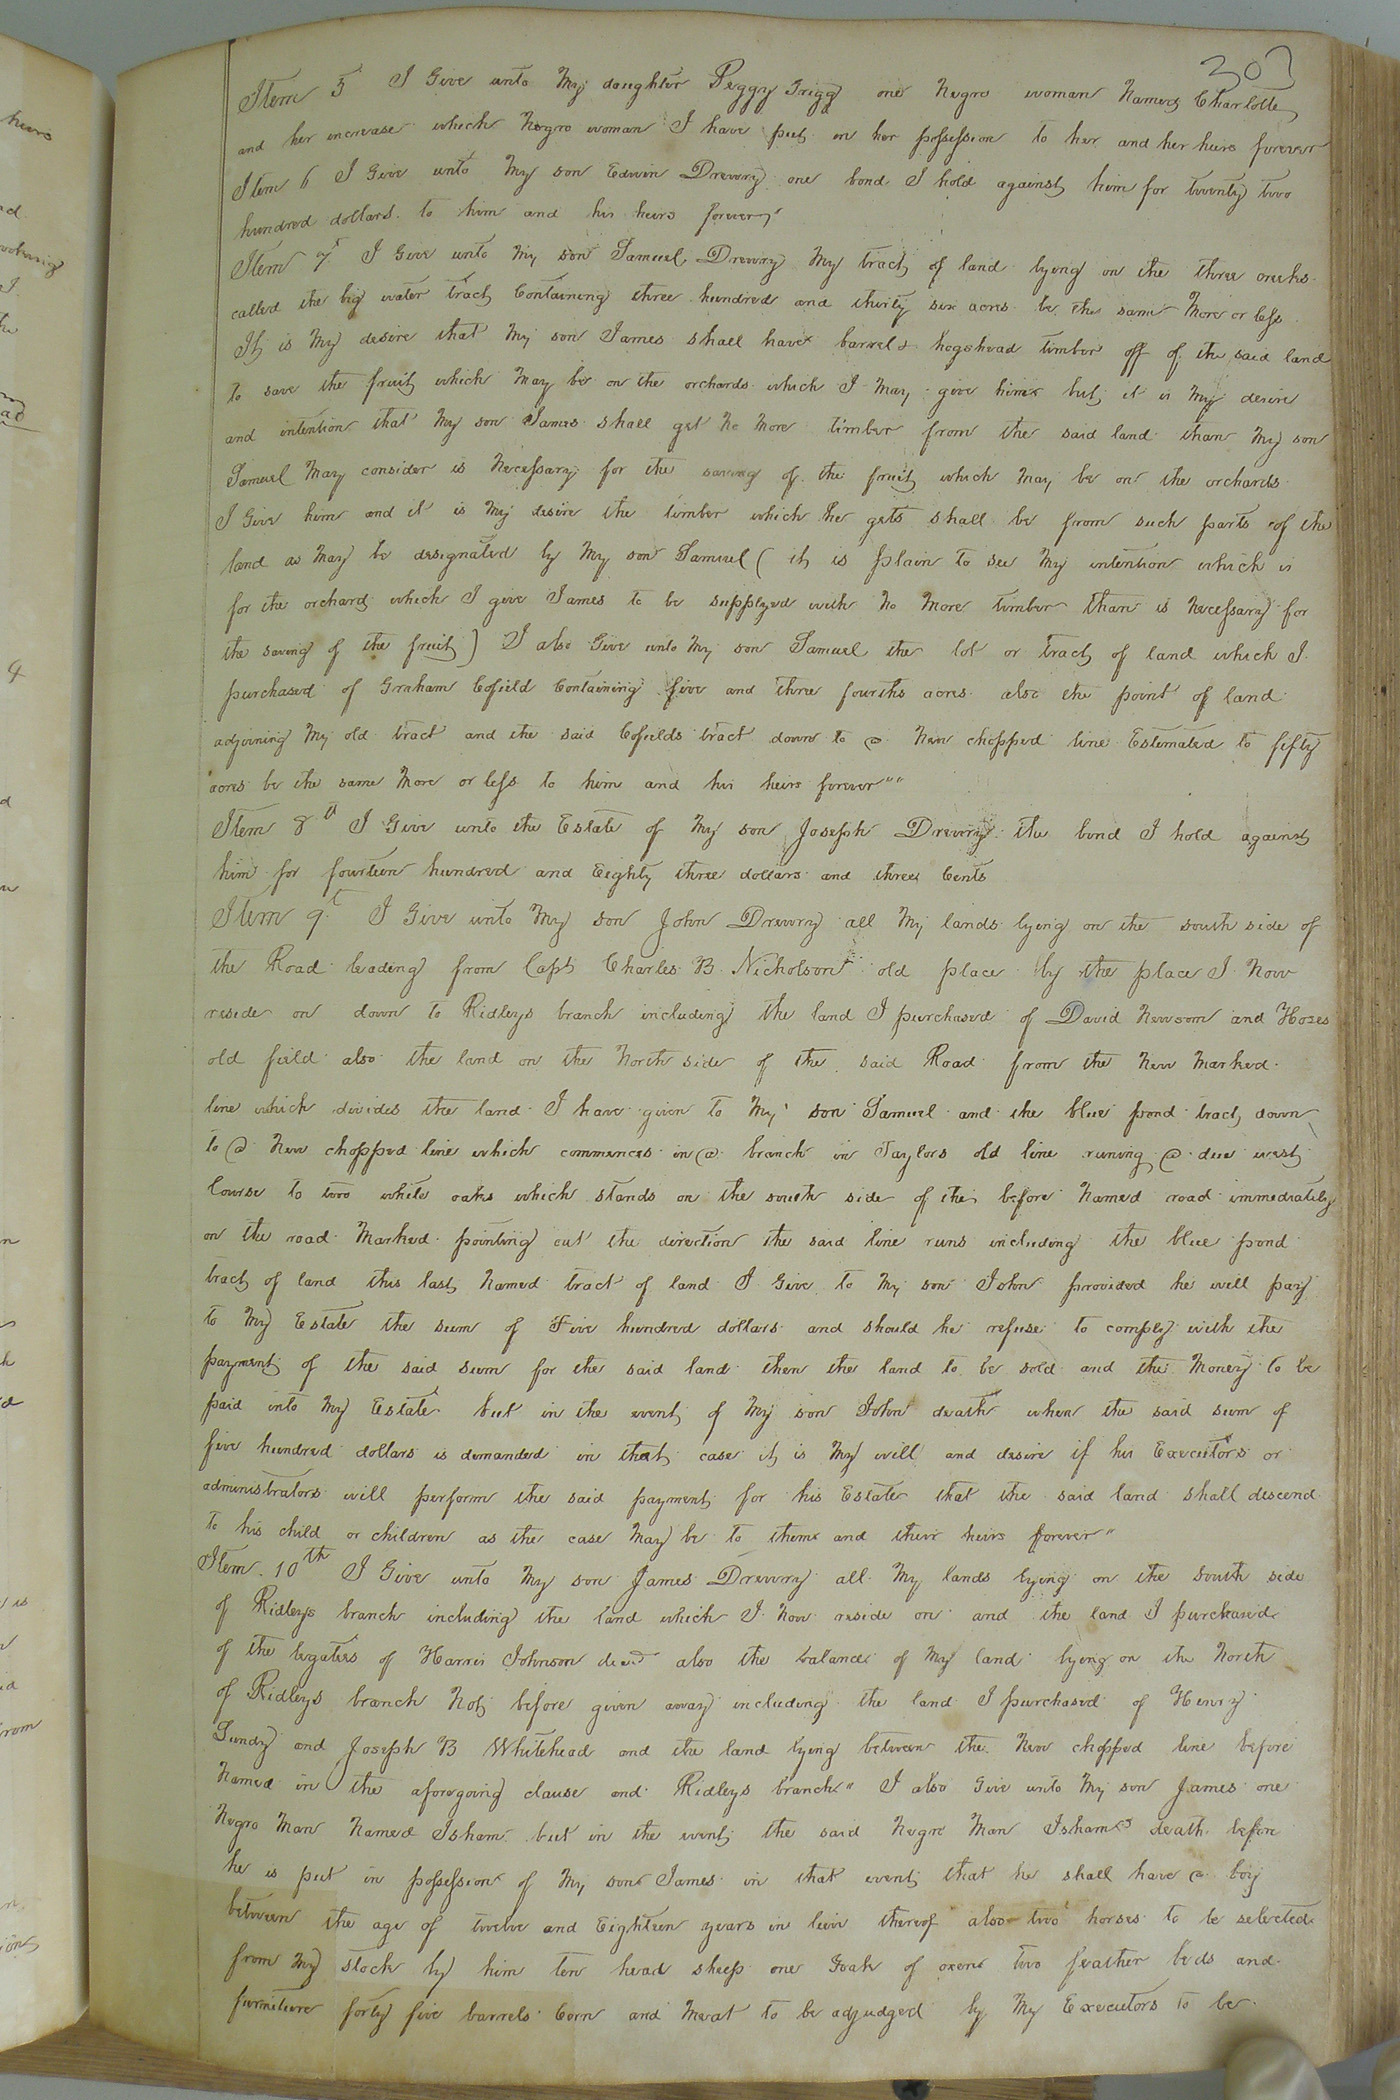 303
Item 5 I Give unto My daughter Peggy Grigg one Negro woman Named Charlotte
and her increase which Negro woman I have put in her possession to her and her heirs forever
Item 6 I Give unto My son Edwin Drewry one bond I hold against him for twenty two
hundred dollars to him and his heirs forever
Item 7th I Give unto My son Samuel Drewry My tract of land lying on the three creeks
called the big water tract Containing three hundred and thirty six acres be the same More or less
It is My desire that My son James shall have barrel & hogshead timber off of the said land
to save the fruit which May be on the orchards which I May give him but it is My desire
and intention that My son James shall get No More timber from the said land than My son
Samuel May consider is Necessary for the saving of the fruit which May be on the orchards
I Give him and it is My desire the timber which he gets shall be from such parts of the
land as May be designated by My son Samuel ( it is plain to see My intention which is
for the orchard which I give James to be supplyed with No More timber than is Necessary for
the saving of the fruit ) I also Give unto My son Samuel the lot or tract of land which I
purchased of Graham Cofield Containing five and three fourths acres also the point of land
adjoining My old tract and the said Cofields tract down to a New chopped line Estimated to fifty
acres be the same More or less to him and his heirs forever""
Item 8th I Give unto the Estate of My son Joseph Drewry the bond I hold against
him for fourteen hundred and Eighty three dollars and three Cents
Item 9t I Give unto My son John Drewry all My lands lying on the south side of
the Road leading from Capt Charles B Nicholson old place by the place I Now
reside on down to Ridleys branch including the land I purchased of David Newsom and
old field also the land on the North side of the said Road from the New Marked
line which divides the land I have given to My son Samuel and the blue pond tract down
to a New chopped line which commences in a branch in Taylors old line runing a due west
Course to two white oaks which stands on the south side of the before Named road immediately
on the road Marked pointing out the direction the said line runs including the blue pond
tract of land this last Named tract of land I Give to My son John provided he will pay
to My Estate the sum of Five hundred dollars and should he refuse to comply with the
payment of the said sum for the said land then the land to be sold and the Money to be
paid into My Estate but in the event of My son John death when the said sum of
five hundred dollars is demanded in that case it is My will and desire if his Executors or
administrators will perform the said payment for his Estate that the said land shall descend
to his child or children as the case May be to them and their heirs forever"
Item 10th I Give unto My son James Drewry all My lands lying on the South side
of Ridleys branch including the land which I Now reside on and the land I purchased
of the legatees of Harris Johnson decd also the balance of My land lying on the North
of Ridleys branch Not before given away including the land I purchased of Henry
and Joseph B Whitehead and the land lying between the New chopped line before
Named in the aforegoing clause and Ridleys branch" I also Give unto My son James one
Negro Man Named Isham but in the event the said Negro Man Ishams death before
he is put in possession of My son James in that event that he shall have a boy
between the age of twelve and Eighteen years in lieu thereof also two horses to be selected
from My stock by him ten head sheep one Yoak of oxen two feather beds and
furniture forty five barrels Corn and Meat to be adjudged by My Executors to be